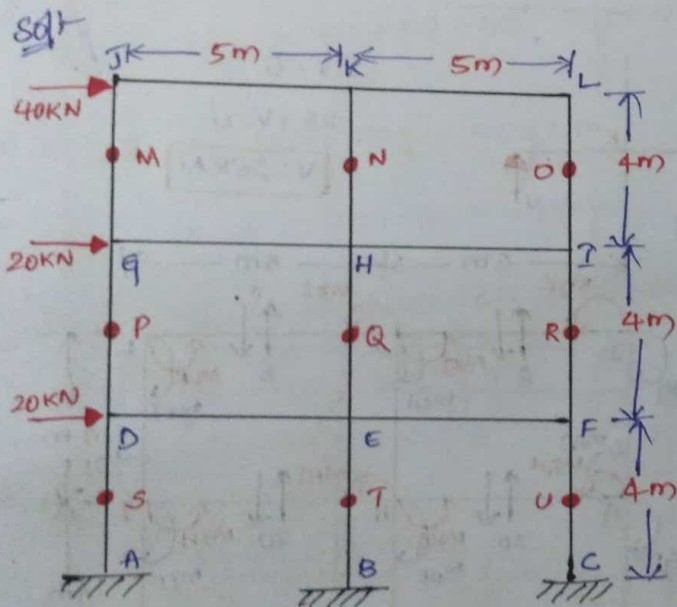 Sol:-
J 5m K 5m L
40KN
M N O 4m
20KN
G H I
P Q R 4m
20KN
D E F
S T U 4m
A B C